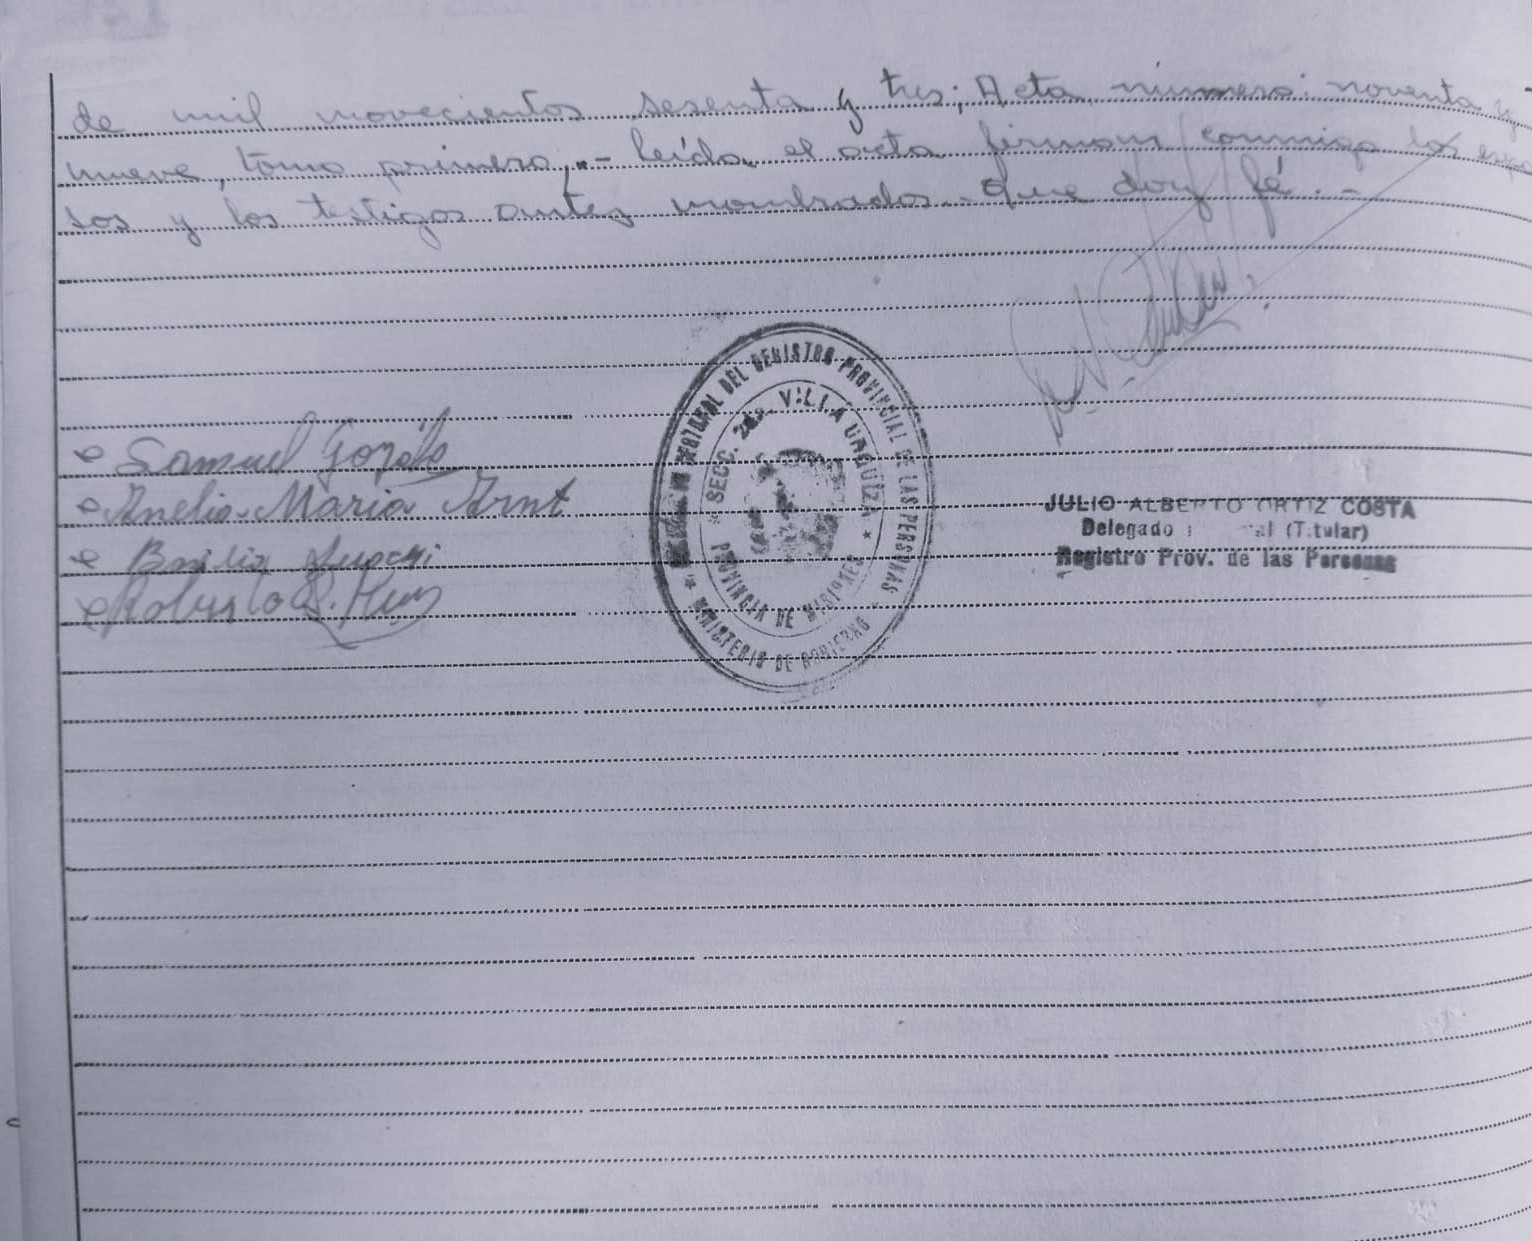 de mil novecientos sesenta y tres; Acta número: noventa y
nueve, tomo primero,.- leída el acta firman conmigo los espo
sos y los testigos antes nombrados. Que doy fé.-
Samuel
Anelia Maria Arnt
Basilia
Roberto
REGISTRO PROVINCIAL DE LAS PERSONAS
MINISTERIO DE GOBIERNO
SECC. VILLA URQUIZA
PROVINCIA DE MISIONES
JULIO ALBERTO ORTIZ COSTA
Delegado (Titular)
Registro Prov. de las Personas